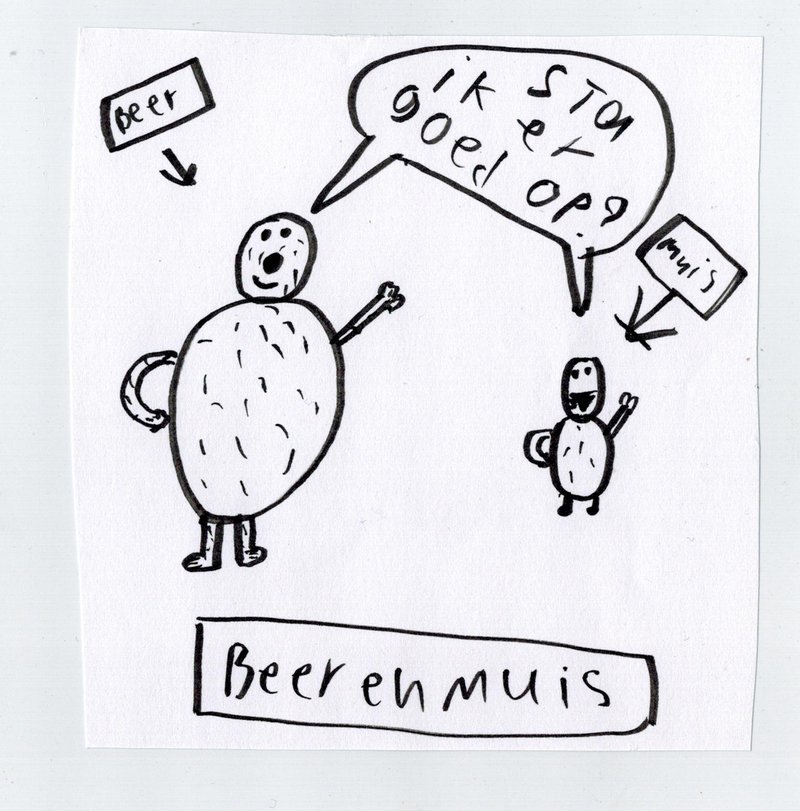 Beer
ik STa
er
goed op?
muis
Beer en muis